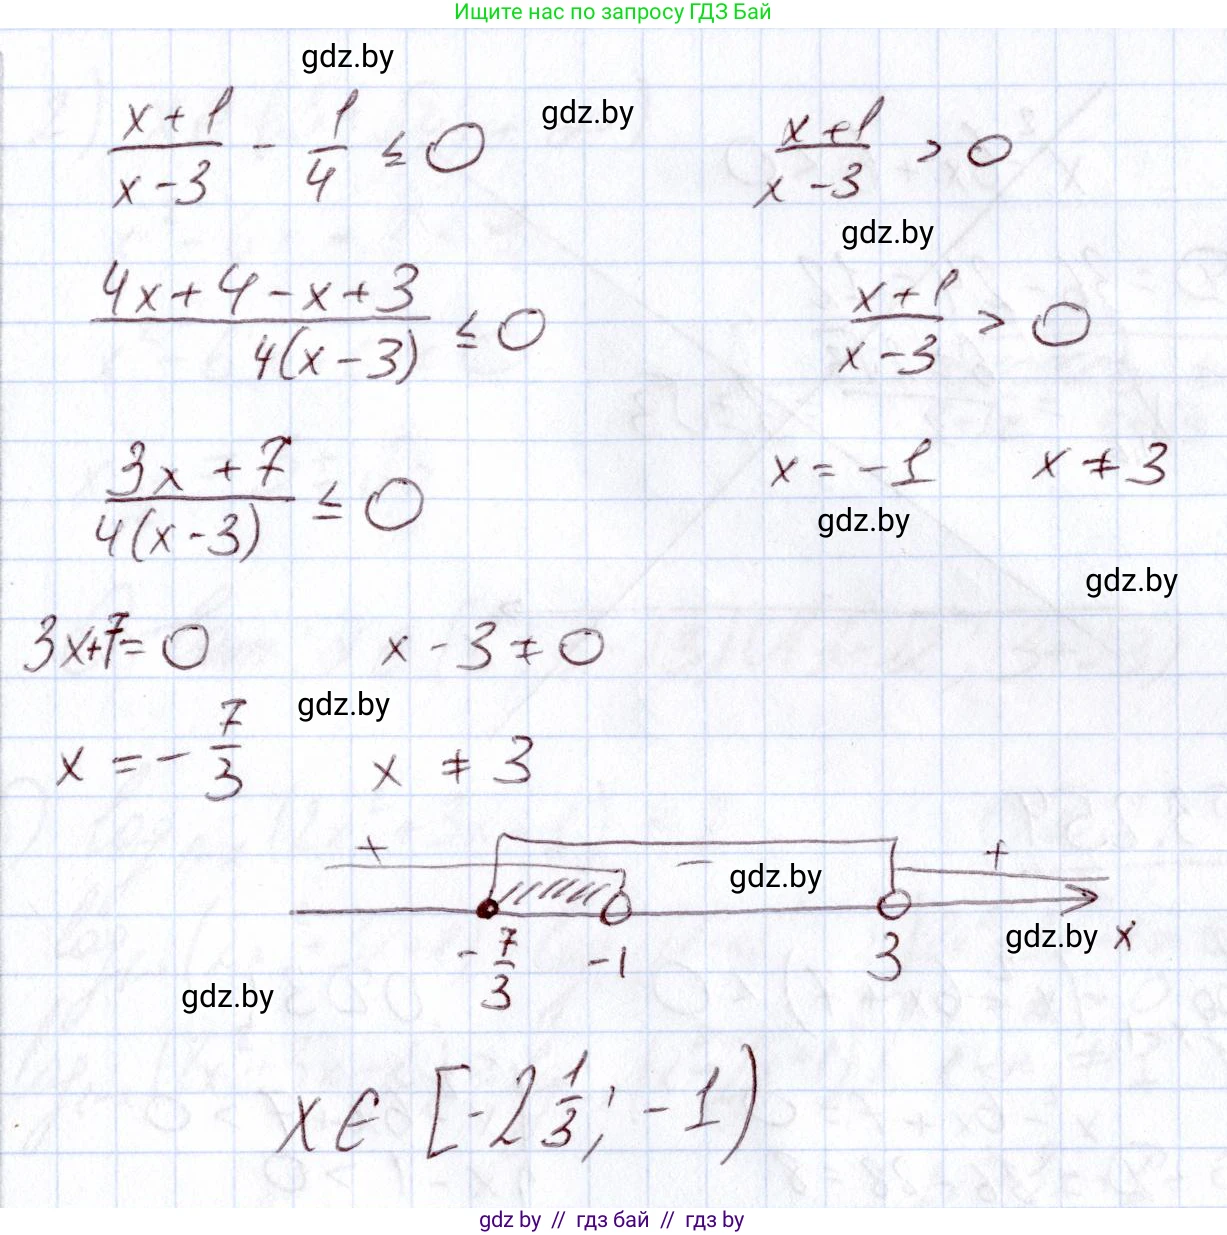 Ищите нас по запросу ГДЗ Бай
gdz.by
gdz.by
(x+1)/(x-3) - 1/4 ≤ 0
(x+1)/(x-3) > 0
gdz.by
(4x+4-x+3)/(4(x-3)) ≤ 0
(x+1)/(x-3) > 0
(3x+7)/(4(x-3)) ≤ 0
x = -1   x ≠ 3
gdz.by
gdz.by
3x+7=0   x-3≠0
gdz.by
x = -7/3   x ≠ 3
+ - +
gdz.by
-7/3 -1 3 x
gdz.by
gdz.by
x ∈ [-2 1/3; -1)
gdz.by // гдз бай // гдз by